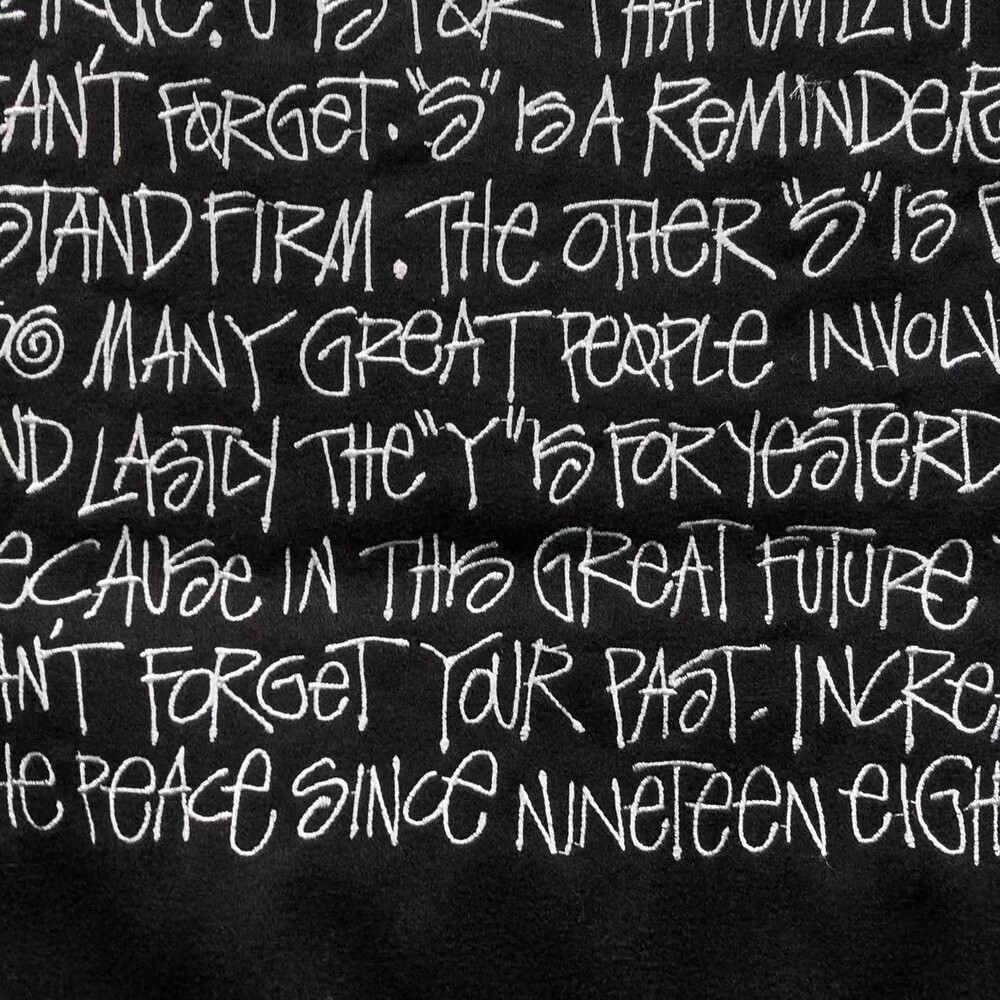 IS FOR THAT
AN'T FORGET. "S" IS A REMINDER
STAND FIRM. THE OTHER "S" IS
SO MANY GREAT PEOPLE INVOLV
ND LASTLY THE "Y" IS FOR YESTERD
ECAUSE IN THIS GREAT FUTURE
AN'T FORGET YOUR PAST. INCREA
HE PEACE SINCE NINETEEN EIGH